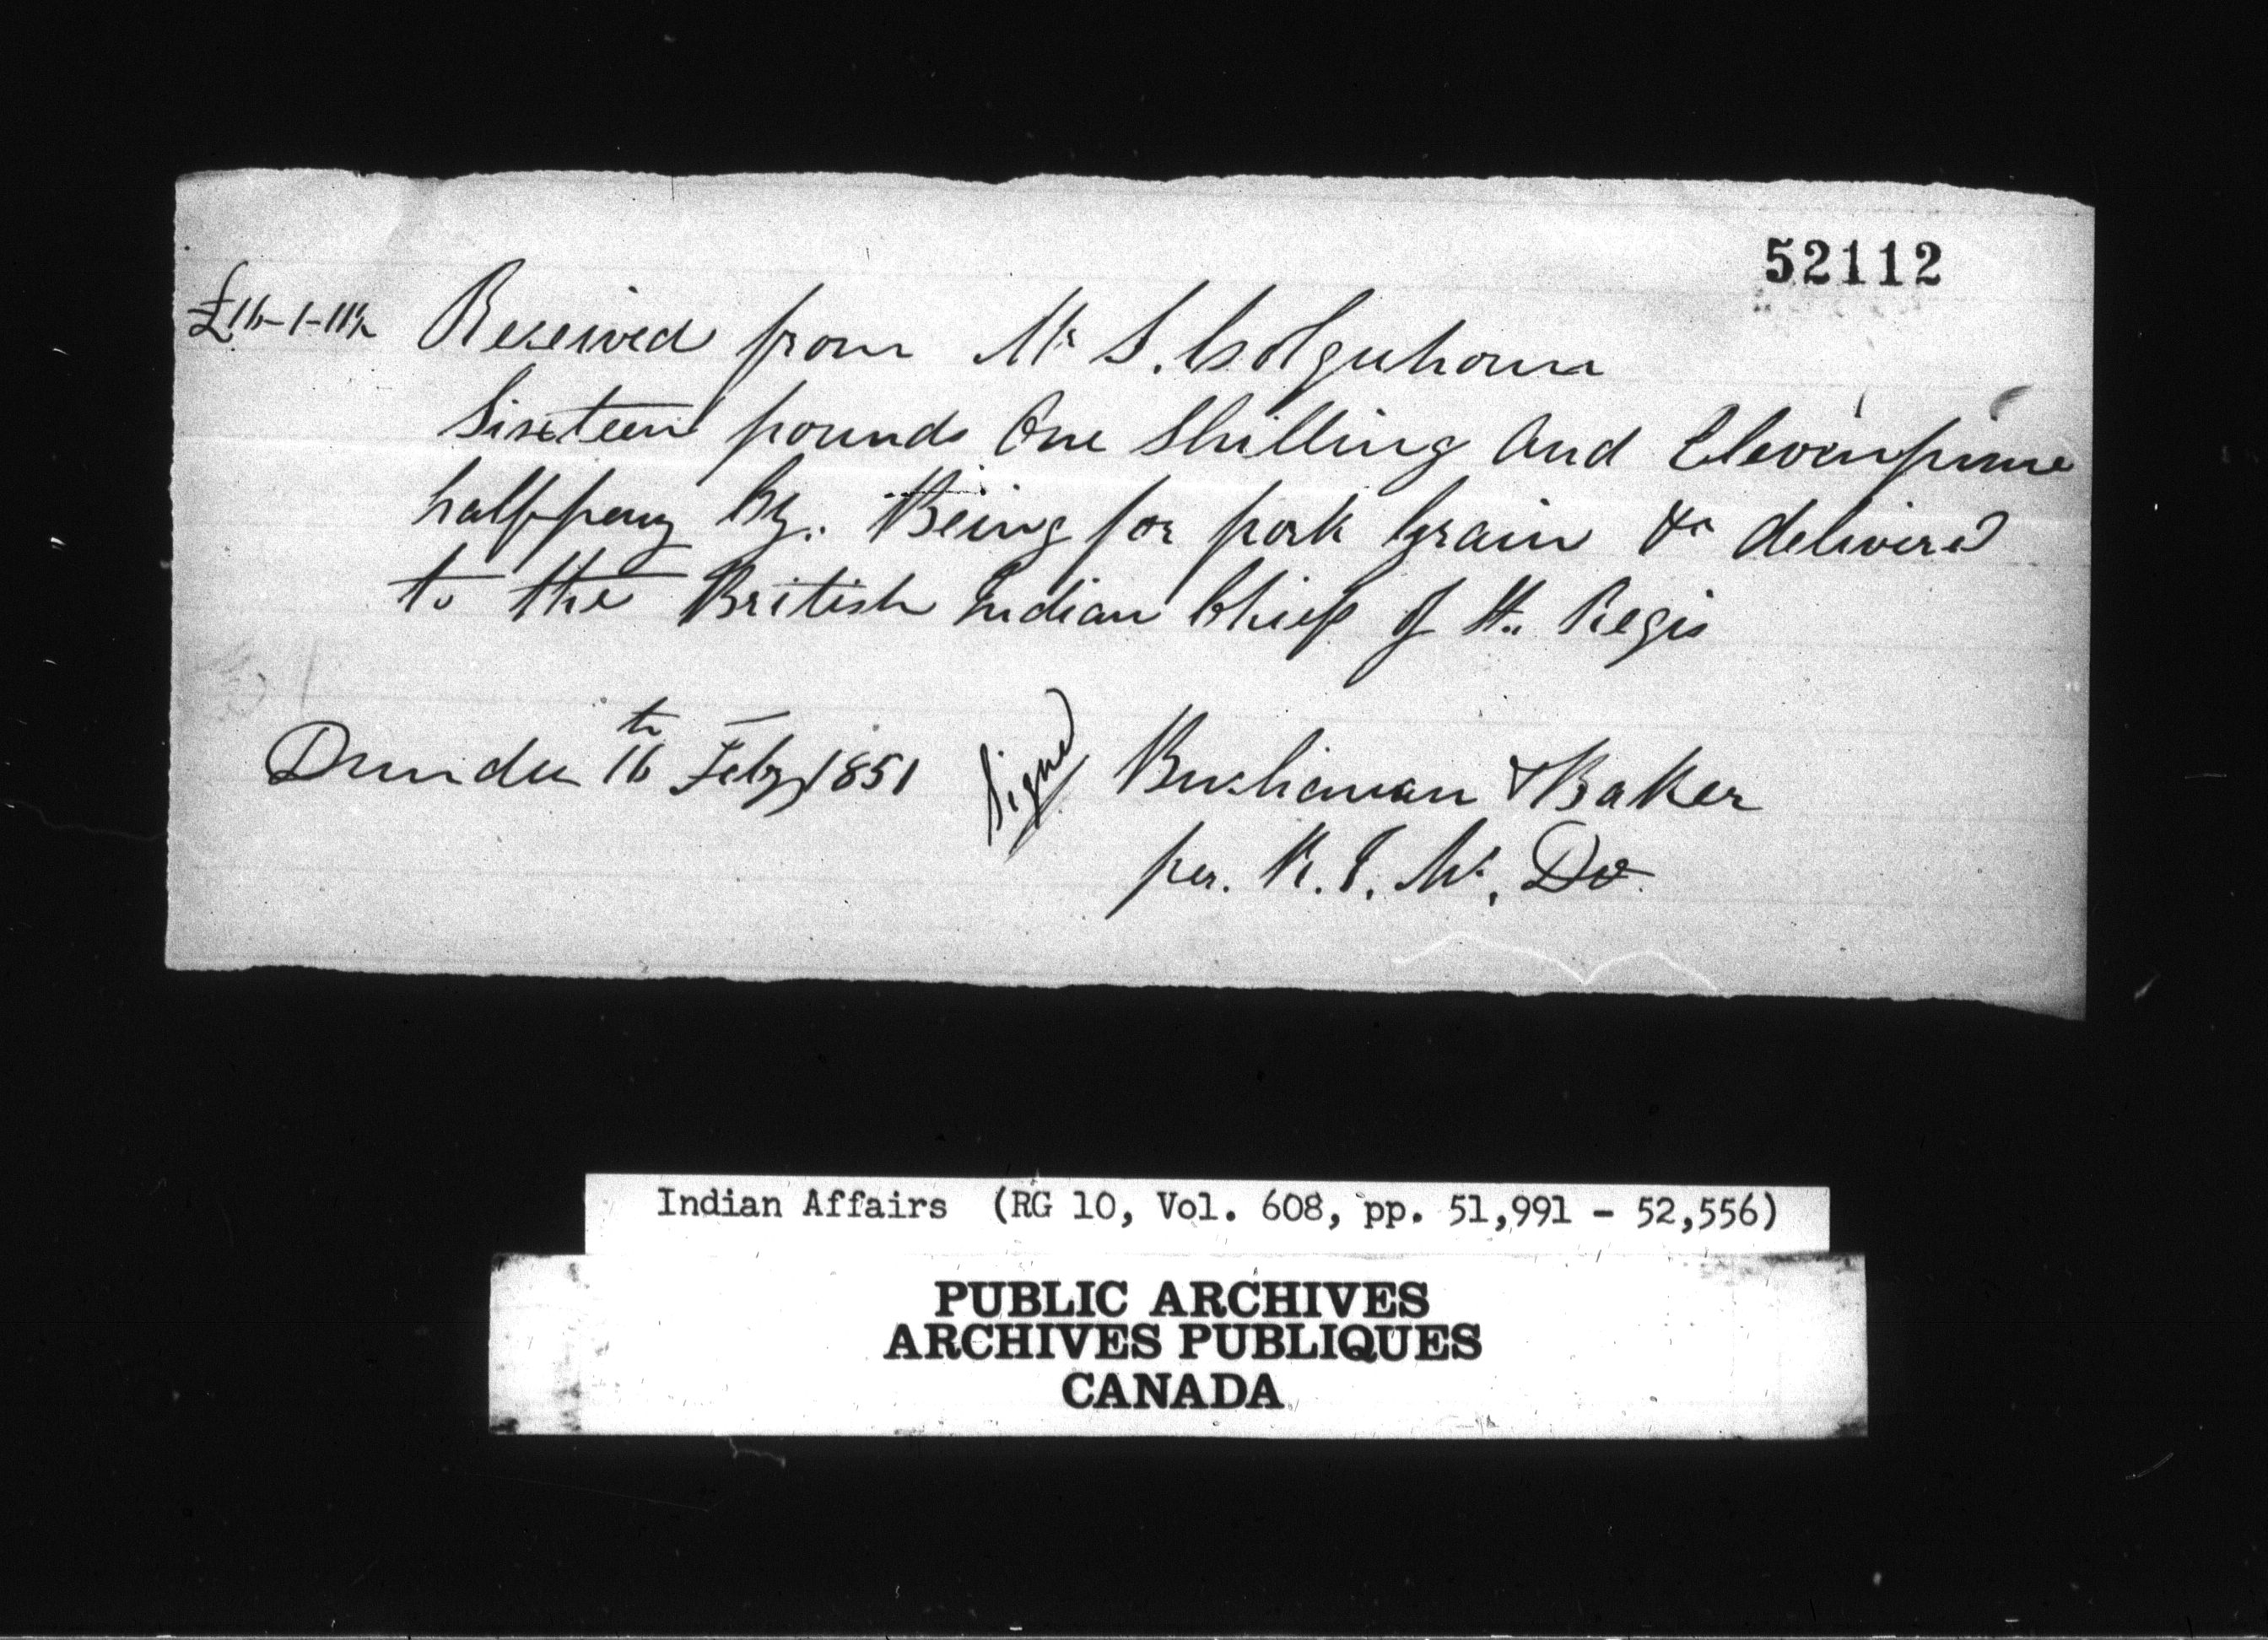 52112
£16-1-11½ Received from Mr S. Colquhoun
Sixteen pounds One Shilling And Elevenpence
halfpeny Cy. Being for pork Grain &c delivered
to the British Indian Chiefs of St. Regis
Dundee 16th Feby 1851 Signed Buchanan & Baker
per. R. J. W. Do
Indian Affairs (RG 10, Vol. 608, pp. 51,991 - 52,556)
PUBLIC ARCHIVES
ARCHIVES PUBLIQUES
CANADA